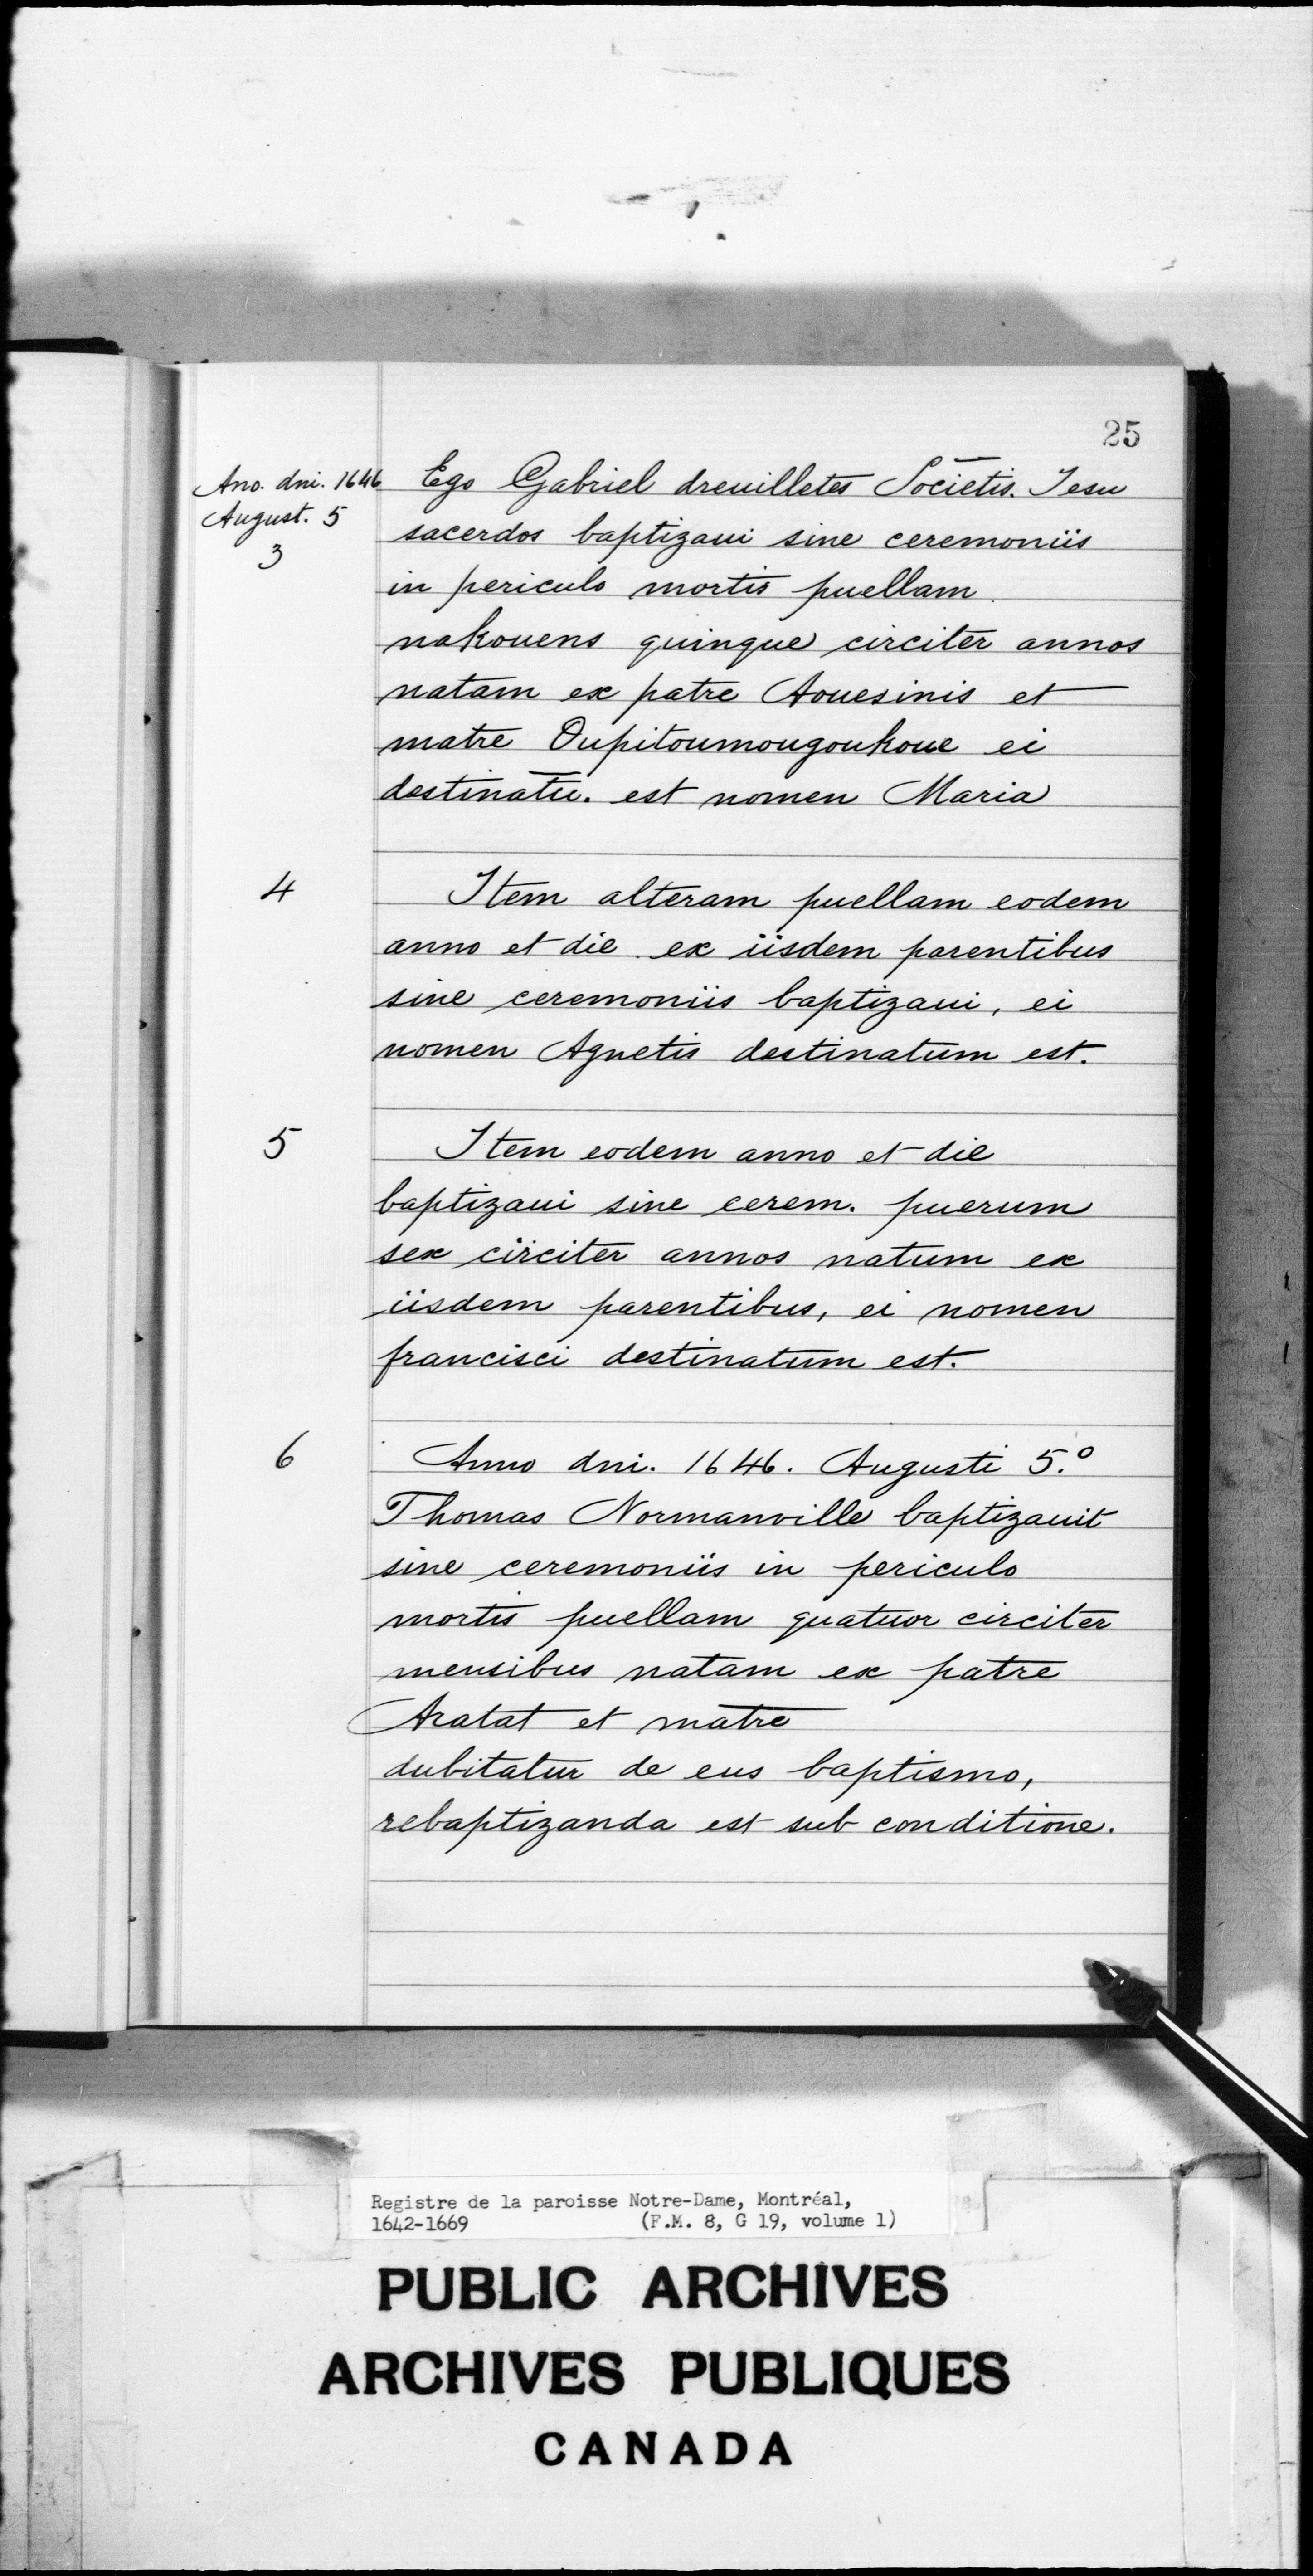 25
Ano. dni. 1646
August. 5
3
Ego Gabriel dreuilletes Societis. Jesu
sacerdos baptizaui sine ceremoniis
in periculo mortis puellam
nakouens quinque circiter annos
natam ex patre Aouesinis et
matre Oupitoumougoukoue ei
destinatū. est nomen Maria
4
Item alteram puellam eodem
anno et die ex iisdem parentibus
sine ceremoniis baptizaui, ei
nomen Agnetis destinatum est.
5
Item eodem anno et die
baptizaui sine cerem. puerum
sex circiter annos natum ex
iisdem parentibus, ei nomen
francisci destinatum est.
6
Anno dni. 1646. Augusti 5.º
Thomas Normanville baptizauit
sine ceremoniis in periculo
mortis puellam quatuor circiter
mensibus natam ex patre
Aratat et matre
dubitatur de eus baptismo,
rebaptizanda est sub conditione.
Registre de la paroisse Notre-Dame, Montréal,
1642-1669 (F.M. 8, G 19, volume 1)
PUBLIC ARCHIVES
ARCHIVES PUBLIQUES
CANADA